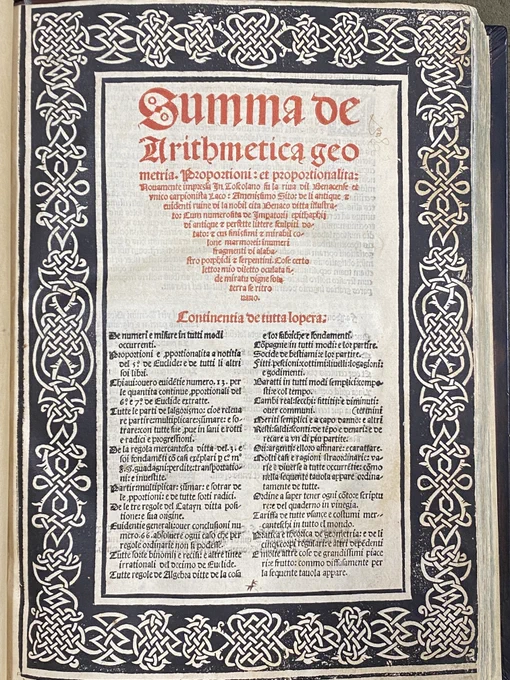 Summa de
Arithmetica geo
metria. Proportioni: et proportionalita:
Novamente impressa In Toscolano su la riva dil Benacense et
unico carpionista Laco: Amenissimo Sito: de li antique &
evidenti ruine di la nobil cita Benaco ditta illustra-
to: Cum numerosita de Impatorii epithaphii
di antique & perfette littere sculpiti do-
tato: & cus finissimi & mirabil co-
lone marmorei: inumeri
fragmenti di alaba-
stro porphidi & serpentini. Cose certa
lettor mio diletto oculata fi-
de miratu digne sot-
terra se ritro
vano.
Continentia de tutta lopera:
De numeri e misure in tutti modi
occurrenti.
Proportioni e pportionalita a notitia
del 5º de Euclide: e de tutti li altri
soi libri.
Chiavi: overo evidētie numero. 13. per
le quantita continue pportionali del
6º e 7º de Euclide extratte.
Tutte le parti de lalgorismo: cioe releva
re partire: multiplicar: sūmare: e sotra-
re: con tutte sue pve in sani e rotti
e radici e progressioni.
De la regola mercantesca ditta del .3. e
soi fondamēti
guadagni: perdite: transportatio-
ni: e investite.
Partir: multiplicar: sūmar: e sotrar de
le pportioni: e de tutte sorti radici.
De le tre regole del Catayn ditta posi-
tione: e sua origine.
Evidentie generali: over conclusioni nu-
mero. 66. absolvere ogni caso che per
regole ordinarie non si podesse.
Tutte sorte binomii e recisi e altre linee
irrationali del decimo de Euclide.
Tutte regole de Algebra ditte de la cosa
e lor fabriche e fondamenti.
Cōpagnie in tutti modi: e lor partire.
Socide de bestiami: e lor partire.
Fitti: pesioni: cottimi: livelli: logagioni:
e godimenti.
Baratti in tutti modi semplici: compo-
sti: e col tempo.
Cambi reali: secchi: fittitii: e diminuti:
over communi.
Meriti semplici e a capo danno: e altri termini
Resti: saldi: sconti: de tēpo e denari: e de
recare a un di piu partite.
Ori: argenti: e lor affinare: e carattare.
Molti casi e ragioni straordinarie: va-
rie e diverse a tutte occurrētie: cōmo
nella sequente tavola appare ordina-
tamente de tutte.
Ordine a saper tener ogni cōto e scriptu-
re: e del quaderno in vinegia.
Tariffa de tutte usanze e costumi mer-
canteschi in tutto el mondo.
Pratica e theorica de geometria: e de li
cinque corpi regulari: e altri dependenti
E molte altre cose de grandissimi piace
ri e frutto: commo diffusamente per
la sequente tavola appare.